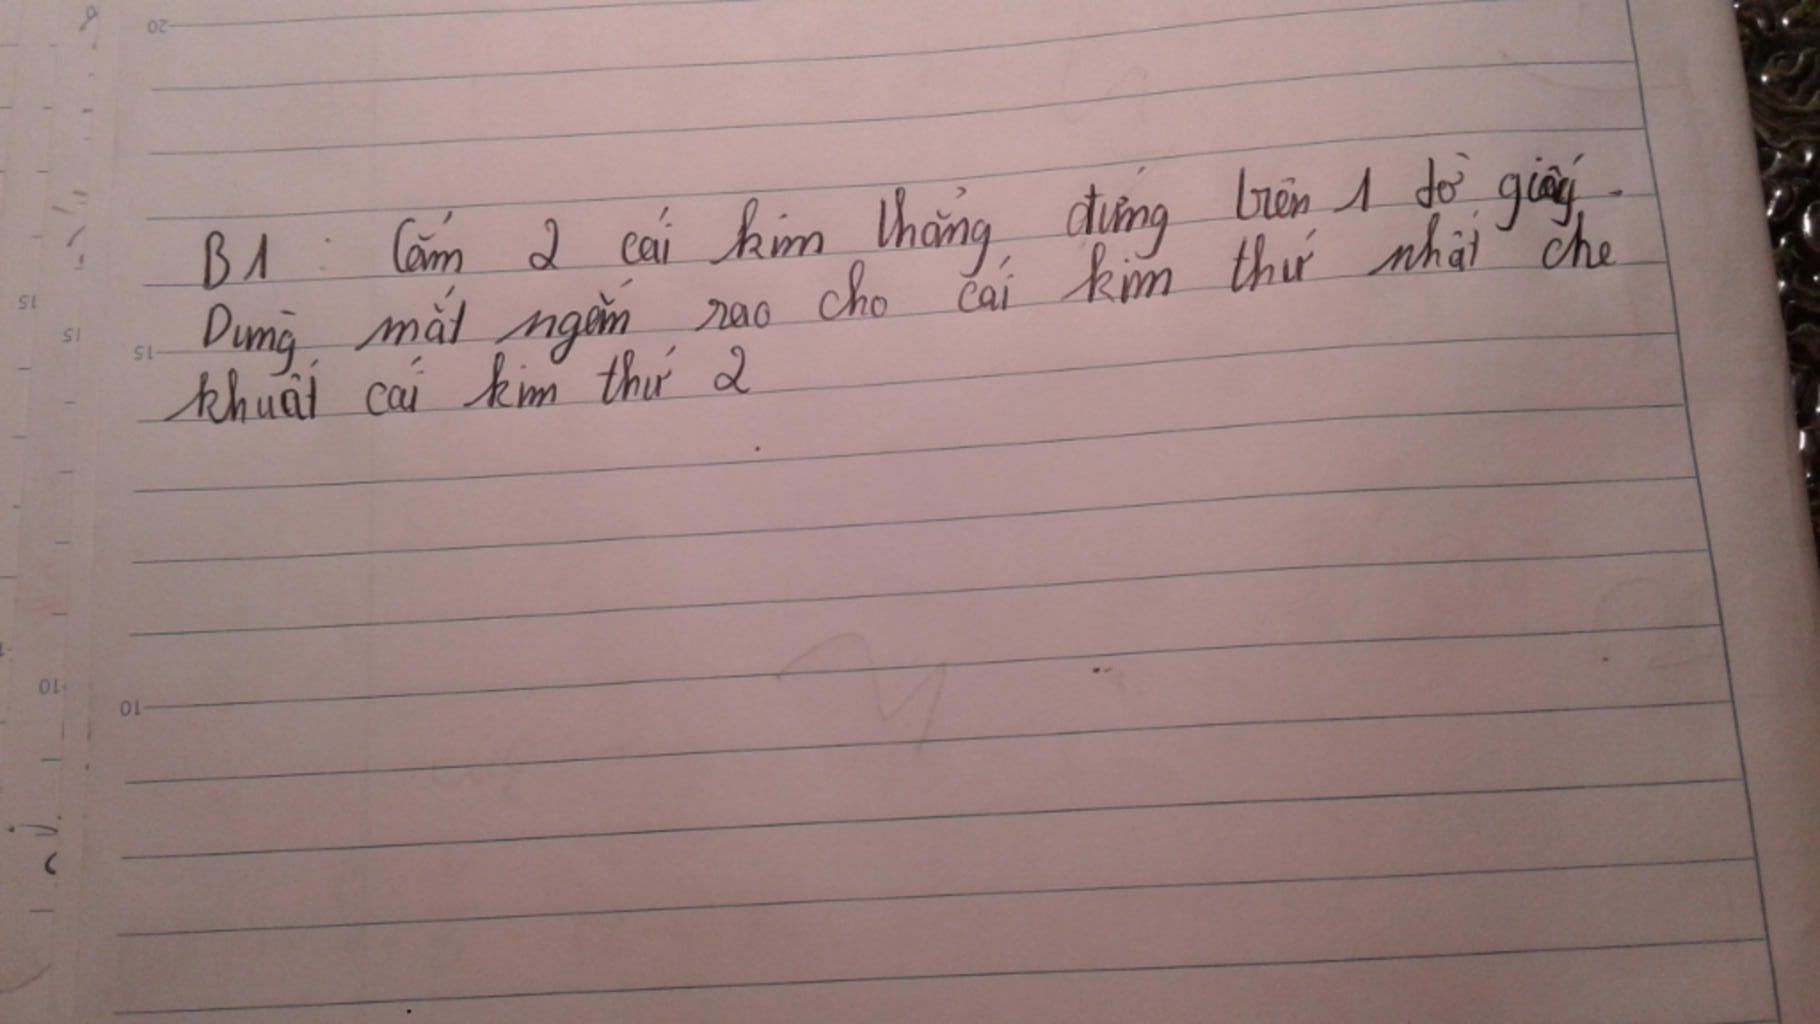 20
B1 : Cắm 2 cái kim thẳng đứng trên 1 tờ giấy.
Dùng mắt ngắm rao cho cái kim thứ nhất che
15
khuất cái kim thứ 2
10
15
15
10